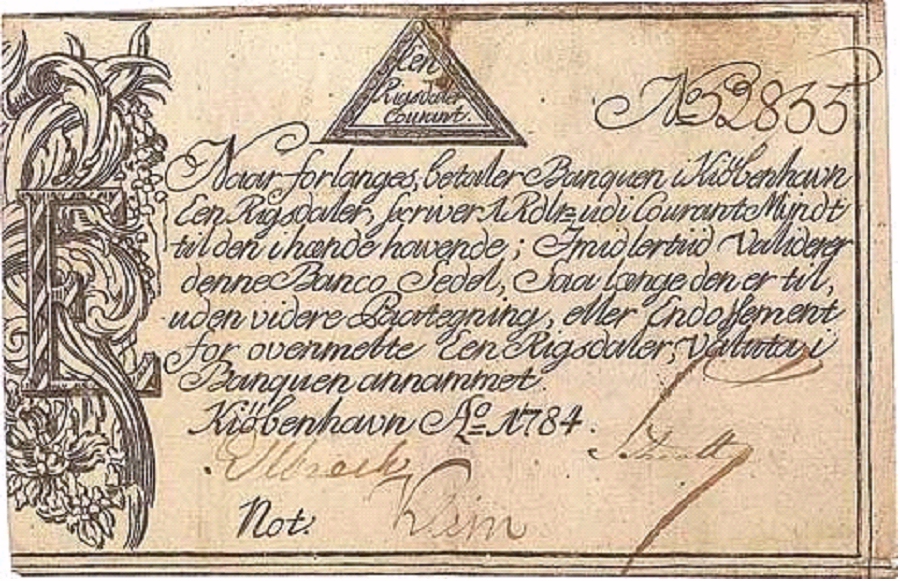 Een
Rigsdaler
Courant.
No 52855
Naar forlanges, betaler Banquen i Kiøbenhavn
Een Rigsdaler, skriver 1 Rdlr= udi Courant Myndt
til den ihænde havende; Imidlertiid Validerer
denne Banco Sedel, Saa længe den er til,
uden videre Paategning, eller Endossement
for ovenmelte Een Rigsdaler, Valuta i
Banquen annammet.
Kiöbenhavn Ao= 1784.
Not: